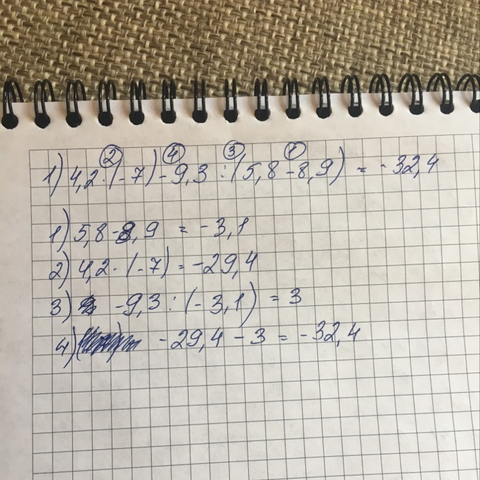 ② ④ ③ ①
1) 4,2·(-7) - 9,3 : (5,8 - 8,9) = -32,4
1) 5,8 - 8,9 = -3,1
2) 4,2·(-7) = -29,4
3) -9,3 : (-3,1) = 3
4) -29,4 - 3 = -32,4